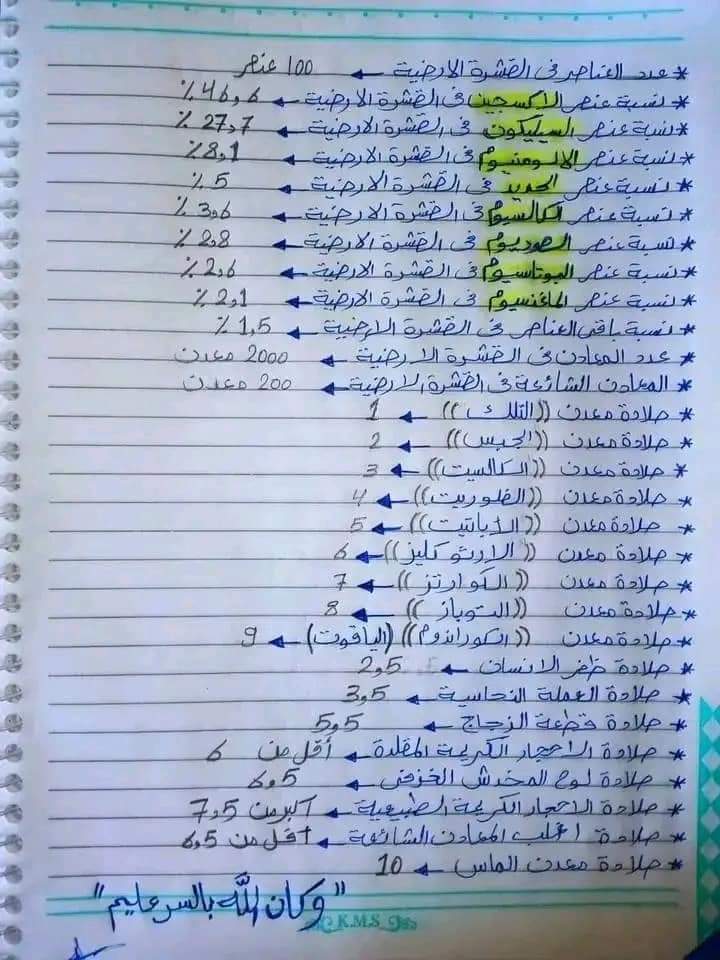 * عدد العناصر فى القشرة الارضية ← 100 عنصر
* نسبة عنصر الاكسجين فى القشرة الارضية ← 46,6 %
* نسبة عنصر السيليكون فى القشرة الارضية ← 27,7 %
* نسبة عنصر الالومنيوم فى القشرة الارضية ← 8,1 %
* نسبة عنصر الحديد فى القشرة الارضية ← 5 %
* نسبة عنصر الكالسيوم فى القشرة الارضية ← 3,6 %
* نسبة عنصر الصوديوم فى القشرة الارضية ← 2,8 %
* نسبة عنصر البوتاسيوم فى القشرة الارضية ← 2,6 %
* نسبة عنصر الماغنسيوم فى القشرة الارضية ← 2,1 %
* نسبة باقى العناصر فى القشرة الارضية ← 1,5 %
* عدد المعادن فى القشرة الارضية ← 2000 معدن
* المعادن الشائعة فى القشرة الارضية ← 200 معدن
* صلادة معدن ((التلك)) ← 1
* صلادة معدن ((الجبس)) ← 2
* صلادة معدن ((الكالسيت)) ← 3
* صلادة معدن ((الفلوريت)) ← 4
* صلادة معدن ((الأباتيت)) ← 5
* صلادة معدن ((الارثوكليز)) ← 6
* صلادة معدن ((الكوارتز)) ← 7
* صلادة معدن ((التوباز)) ← 8
* صلادة معدن ((الكوراندوم)) (الياقوت) ← 9
* صلادة ظفر الانسان ← 2,5
* صلادة العملة النحاسية ← 3,5
* صلادة قطعة الزجاج ← 5,5
* صلادة الاحجار الكريمة المقلدة ← أقل من 6
* صلادة لوح المخدش الخزفى ← 6,5
* صلادة الاحجار الكريمة الطبيعية ← أكبر من 7,5
* صلادة اغلب المعادن الشائعة ← أقل من 6,5
* صلادة معدن الماس ← 10
"وكان اللَّه بالسر عليم"
K.M.S